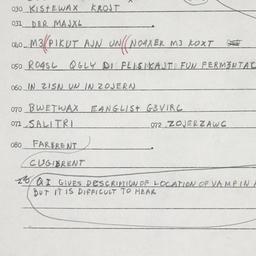 030 KISTEWAX KROJT
031 DER MAJXL
040 M3 PIKUT AJN UN NOAXER M3 KOXT
050 ROQSL QGLY DI FLISIKAJT: FUN FERMENTAC
060 IN ZISN UN IN ZOJERN
070 BWETWAX EANGLIST G3VIRC
071 SALITRI 072 ZOJERZAWC
080 FARBRENT
CUGIBRENT
QI GIVES DESCRIPTION OF LOCATION OF VAMP IN A
BUT IT IS DIFFICULT TO HEAR